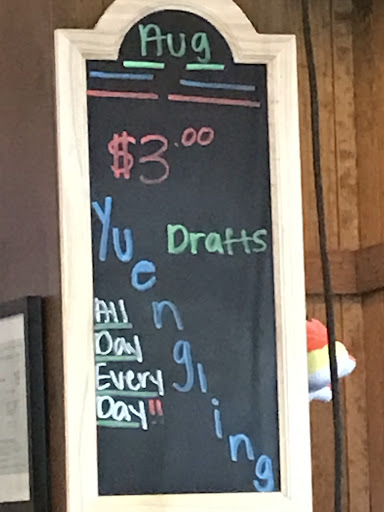 Aug
$3.00
Yuengling Drafts
All
Day
Every
Day!!